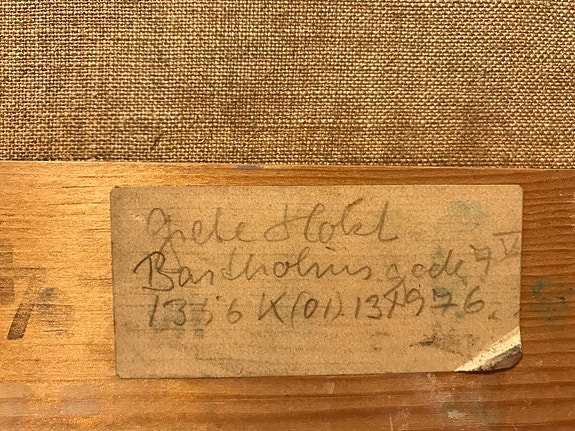 Grete
Bartholinsgade 7 IV
1356 K (01) 134976